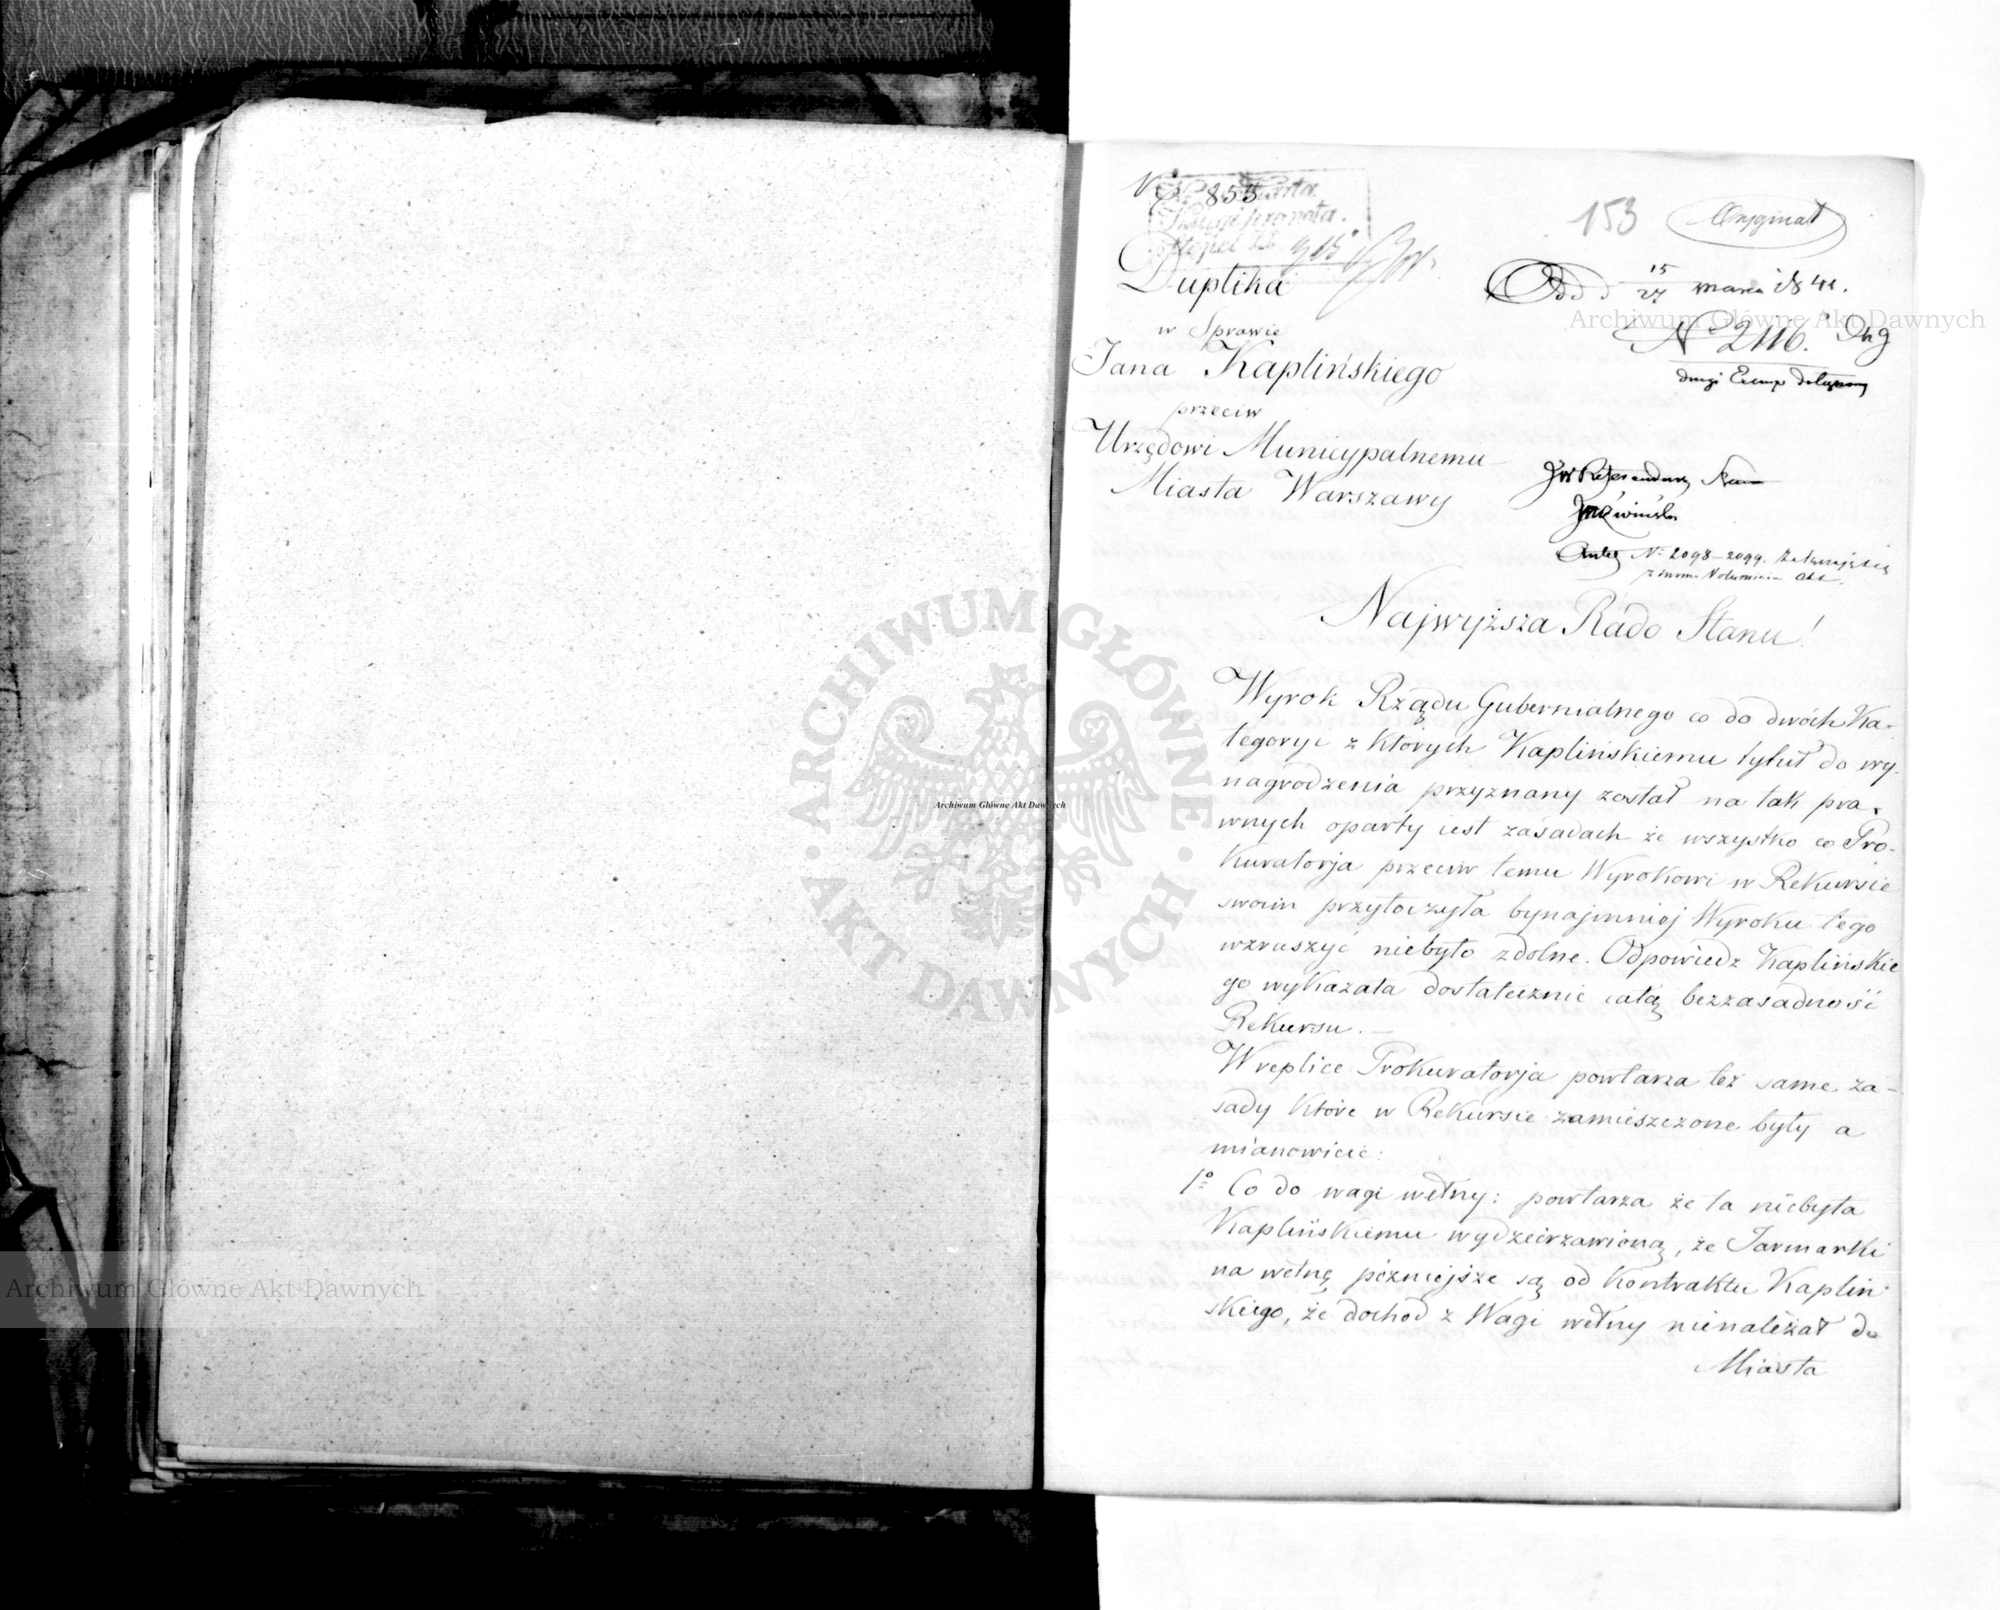 № 855
153
Oryginał
Duplika
w Sprawie
Jana Kaplińskiego
przeciw
Urzędowi Municypalnemu
Miasta Warszawy
Odd d 15/27 marca 1841.
№ 2116.
drugi Exemp dołączony
JW Referendarz Stanu
№ 2098-2099.
Najwyższa Rado Stanu!
Wyrok Rządu Gubernialnego co do dwóch Ka-
tegoryi z których Kaplińskiemu tytuł do wy-
nagrodzenia przyznany został na tak pra-
wnych oparty iest zasadach że wszystko co Pro-
kuratorja przeciw temu Wyrokowi w Rekursie
swoim przytoczyła bynajmniej Wyroku tego
wzruszyć niebyło zdolne. Odpowiedź Kaplińskie
go wykazała dostatecznie całą bezzasadność
Rekursu. —
W replice Prokuratorja powtarza też same za-
sady które w Rekursie zamieszczone były a
mianowicie:
1º Co do wagi wełny: powtarza że ta niebyła
Kaplińskiemu wydzierzawioną, że Jarmarki
na wełnę późniejsze są od Kontraktu Kapliń-
skiego, że dochod z Wagi wełny nienależał do
Miasta
Archiwum Główne Akt Dawnych
Archiwum Główne Akt Dawnych
Archiwum Główne Akt Dawnych
ARCHIWUM GŁÓWNE · AKT DAWNYCH ·